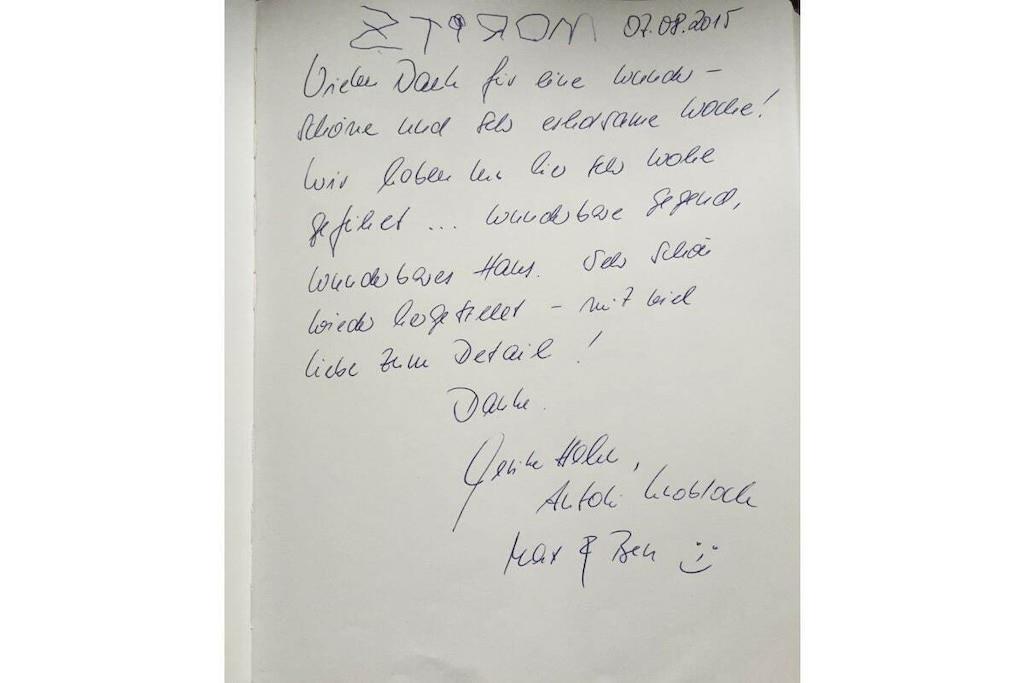 ZTIROM 07.08.2015
Vielen Dank für eine wunder-
schöne und sehr erholsame Woche!
Wir haben uns hier sehr wohl
gefühlt ... wunderbare Gegend,
wunderbares Haus. Sehr schön
wieder hergestellt - mit viel
Liebe zum Detail!
Danke.
Hahn,
Knobloch
Max & Ben